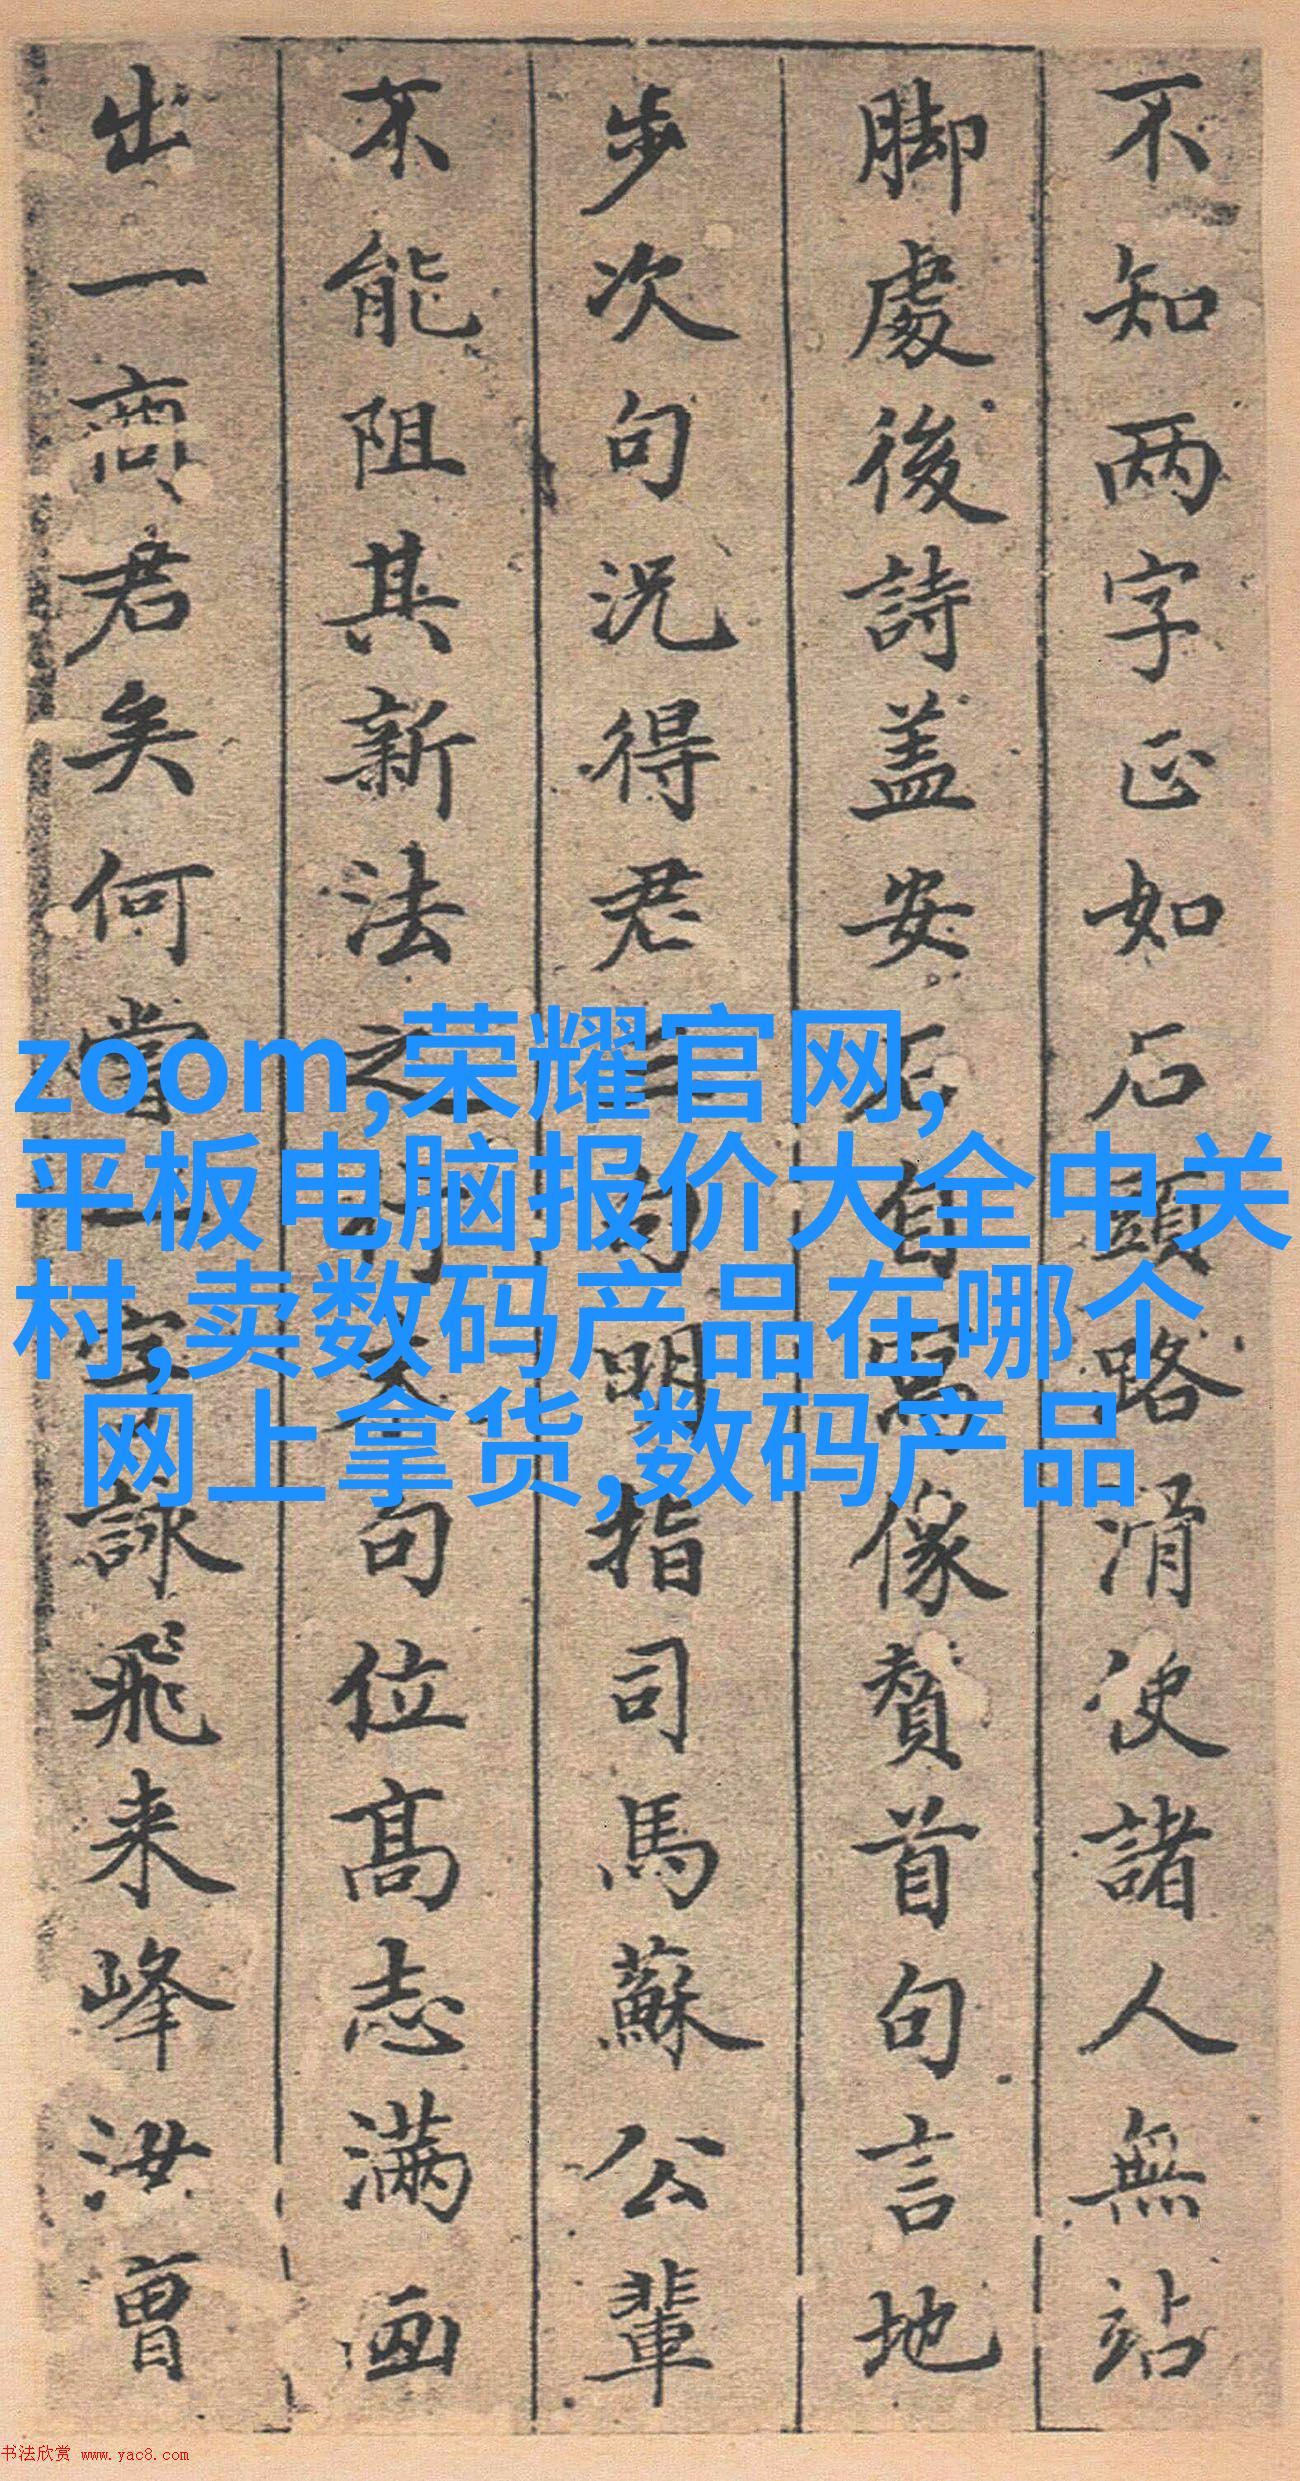 不知两字正如石頭路滑使諸人無站
脚處後詩蓋安石自寫像贊首句言地
步次句况得君三句明指司馬蘇公輩
不能阻其新法之行末句位高志满画
出一商君矣何當一字詠飛来峰汝曾
zoom,荣耀官网,
平板电脑报价大全中关
村,卖数码产品在哪个
网上拿货,数码产品
书法欣赏 www.yac8.com